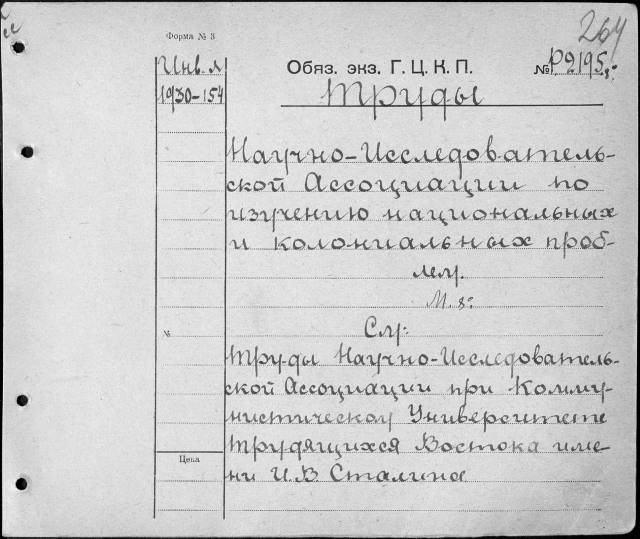 264
Форма № 3
Инв. л
1930-154
Обяз. экз. Г. Ц. К. П.
№ Р2195 8°
Труды
Научно-Исследователь-
ской Ассоциации по
изучению национальных
и колониальных проб-
лем.
М. 8°
См:
№
Труды Научно-Исследователь-
ской Ассоциации при Комму-
нистическом Университете
Трудящихся Востока име-
Цена
ни И.В. Сталина